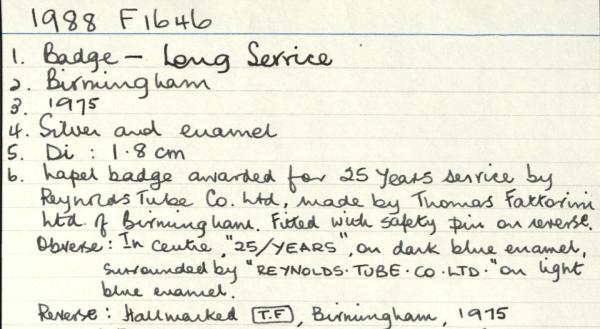 1988 F1646
1. Badge - Long Service
2. Birmingham
3. 1975
4. Silver and enamel
5. Di : 1.8 cm
6. Lapel badge awarded for 25 Years service by
Reynolds Tube Co. Ltd, made by Thomas Fattorini
Ltd. of Birmingham. Fitted with safety pin on reverse.
Obverse: In centre, "25/YEARS", on dark blue enamel,
surrounded by "REYNOLDS·TUBE·CO·LTD·" on light
blue enamel.
Reverse: Hallmarked T.F, Birmingham, 1975